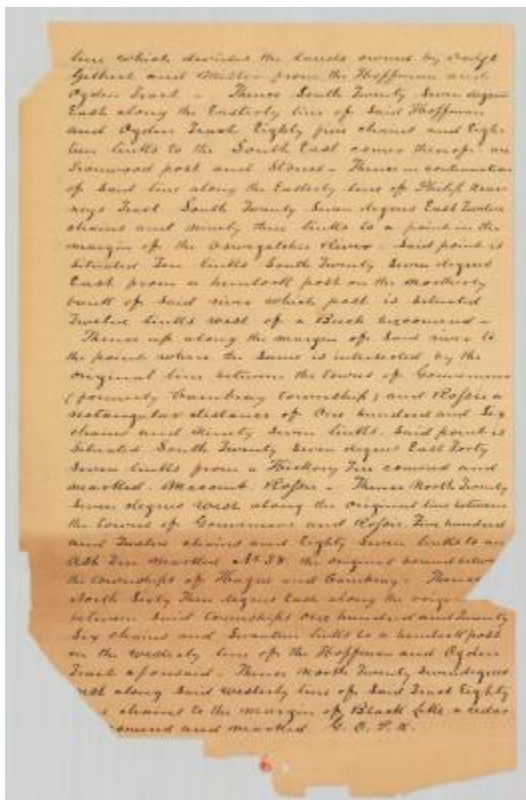 line which devides the lands owned by
Gilbert and Miller from the Hoffman and
Ogden Tract - Thence South Twenty Seven degrees
East along the Easterly line of Said Hoffman
and Ogden Tract Eighty five chains and Eigh-
teen links to the South East corner thereof an
Ironwood post and Stones - Thence in continuation
of Said line along the Easterly line of Philip
Tract South Twenty Seven degrees East Twelve
chains and ninety three links to a point in the
margin of the Oswegatchie River - Said point is
Situated Ten links South Twenty Seven degrees
East from a hemlock post on the Northerly
bank of Said river which post is Situated
Twelve links west of a Beech
Thence up along the margin of Said river to
the point where the Same is intersected by the
original line between the towns of Gouverneur
(formerly Cambray township) and Rossie a
rectangular distance of One hundred and Six
chains and Ninety Seven links. Said point is
Situated South Twenty Seven degrees East Forty
Seven links from a Hickory Tree and
marked. Macomb Rossie - Thence North Twenty
Seven degrees West along the original line between
the towns of Gouverneur and Rossie hundred
and Twelve chains and Eighty Seven links to an
Ash Tree marked No 38. the original bound
the townships of Hague and Cambray - Thence
North Sixty Three degrees East along the
between Said townships One hundred and Twenty
Six chains and Seventeen links to a hemlock post
on the Westerly line of the Hoffman and Ogden
Tract aforesaid - Thence North Twenty Seven degrees
West along Said Westerly line of Said Tract Eighty
chains to the margin of Black Lake a cedar
and marked G. O. P. K.